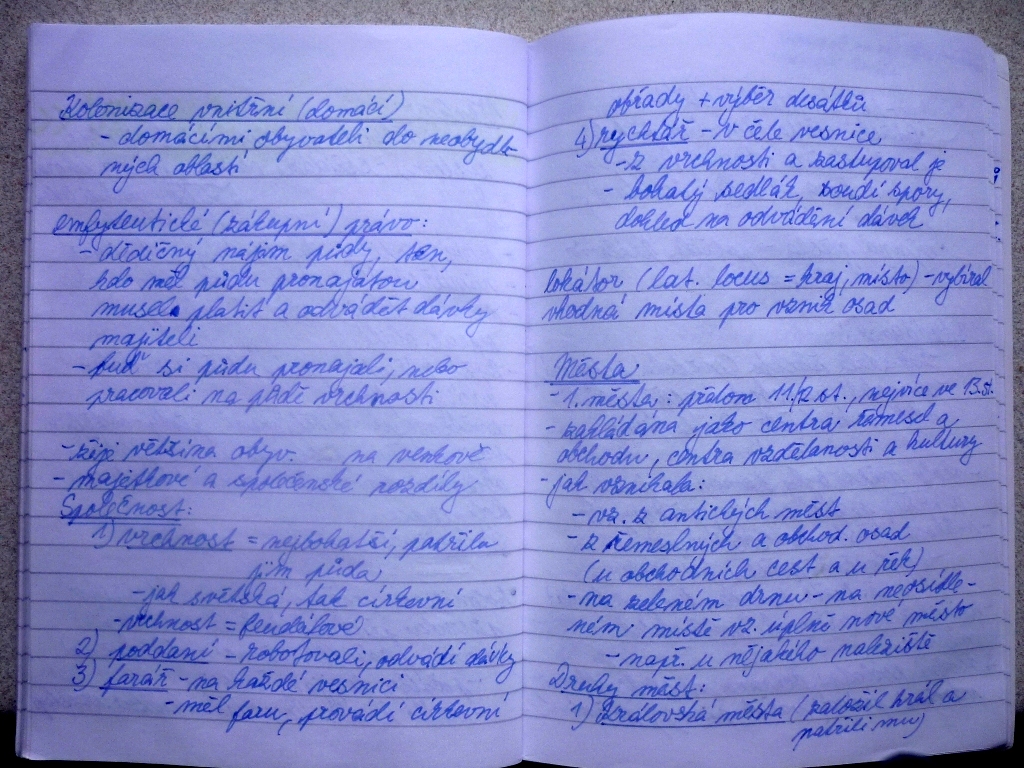 Kolonizace vnitřní (domácí)
- domácími obyvateli do neobydle
ných oblastí
emfyteutické (zákupní) právo:
- dědičný nájem půdy, ten,
kdo měl půdu pronajatou
musel platit a odvádět dávky
majiteli
- buď si půdu pronajali, nebo
pracovali na půdě vrchnosti
- žije většina obyv. na venkově
- majetkové a společenské rozdíly
Společnost:
1) vrchnost = nejbohatší, patřila
jim půda
- jak světská, tak církevní
- vrchnost = feudálové
2) poddaní - robotovali, odvádí dávky
3) farář - na každé vesnici
- měl faru, provádí církevní
obřady + výběr desátků
4) rychtář - v čele vesnice
- z vrchnosti a zastupoval je
- bohatý sedlák, soudí spory,
dohled na odvádění dávek
lokátor (lat. locus = kraj, místo) - vybíral
vhodná místa pro vznik osad
Města
- 1. města: přelom 11./12 st., nejvíce ve 13. st.
- zakládána jako centra řemesel a
obchodu, centra vzdělanosti a kultury
- jak vznikala:
- vz. z antických měst
- z řemeslných a obchod. osad
(u obchodních cest a u řek)
- na zeleném drnu - na neosídle-
ném místě vz. úplně nové město
- např. u nějakého naleziště
Druhy měst:
1) královská města (založil král a
patřili mu)